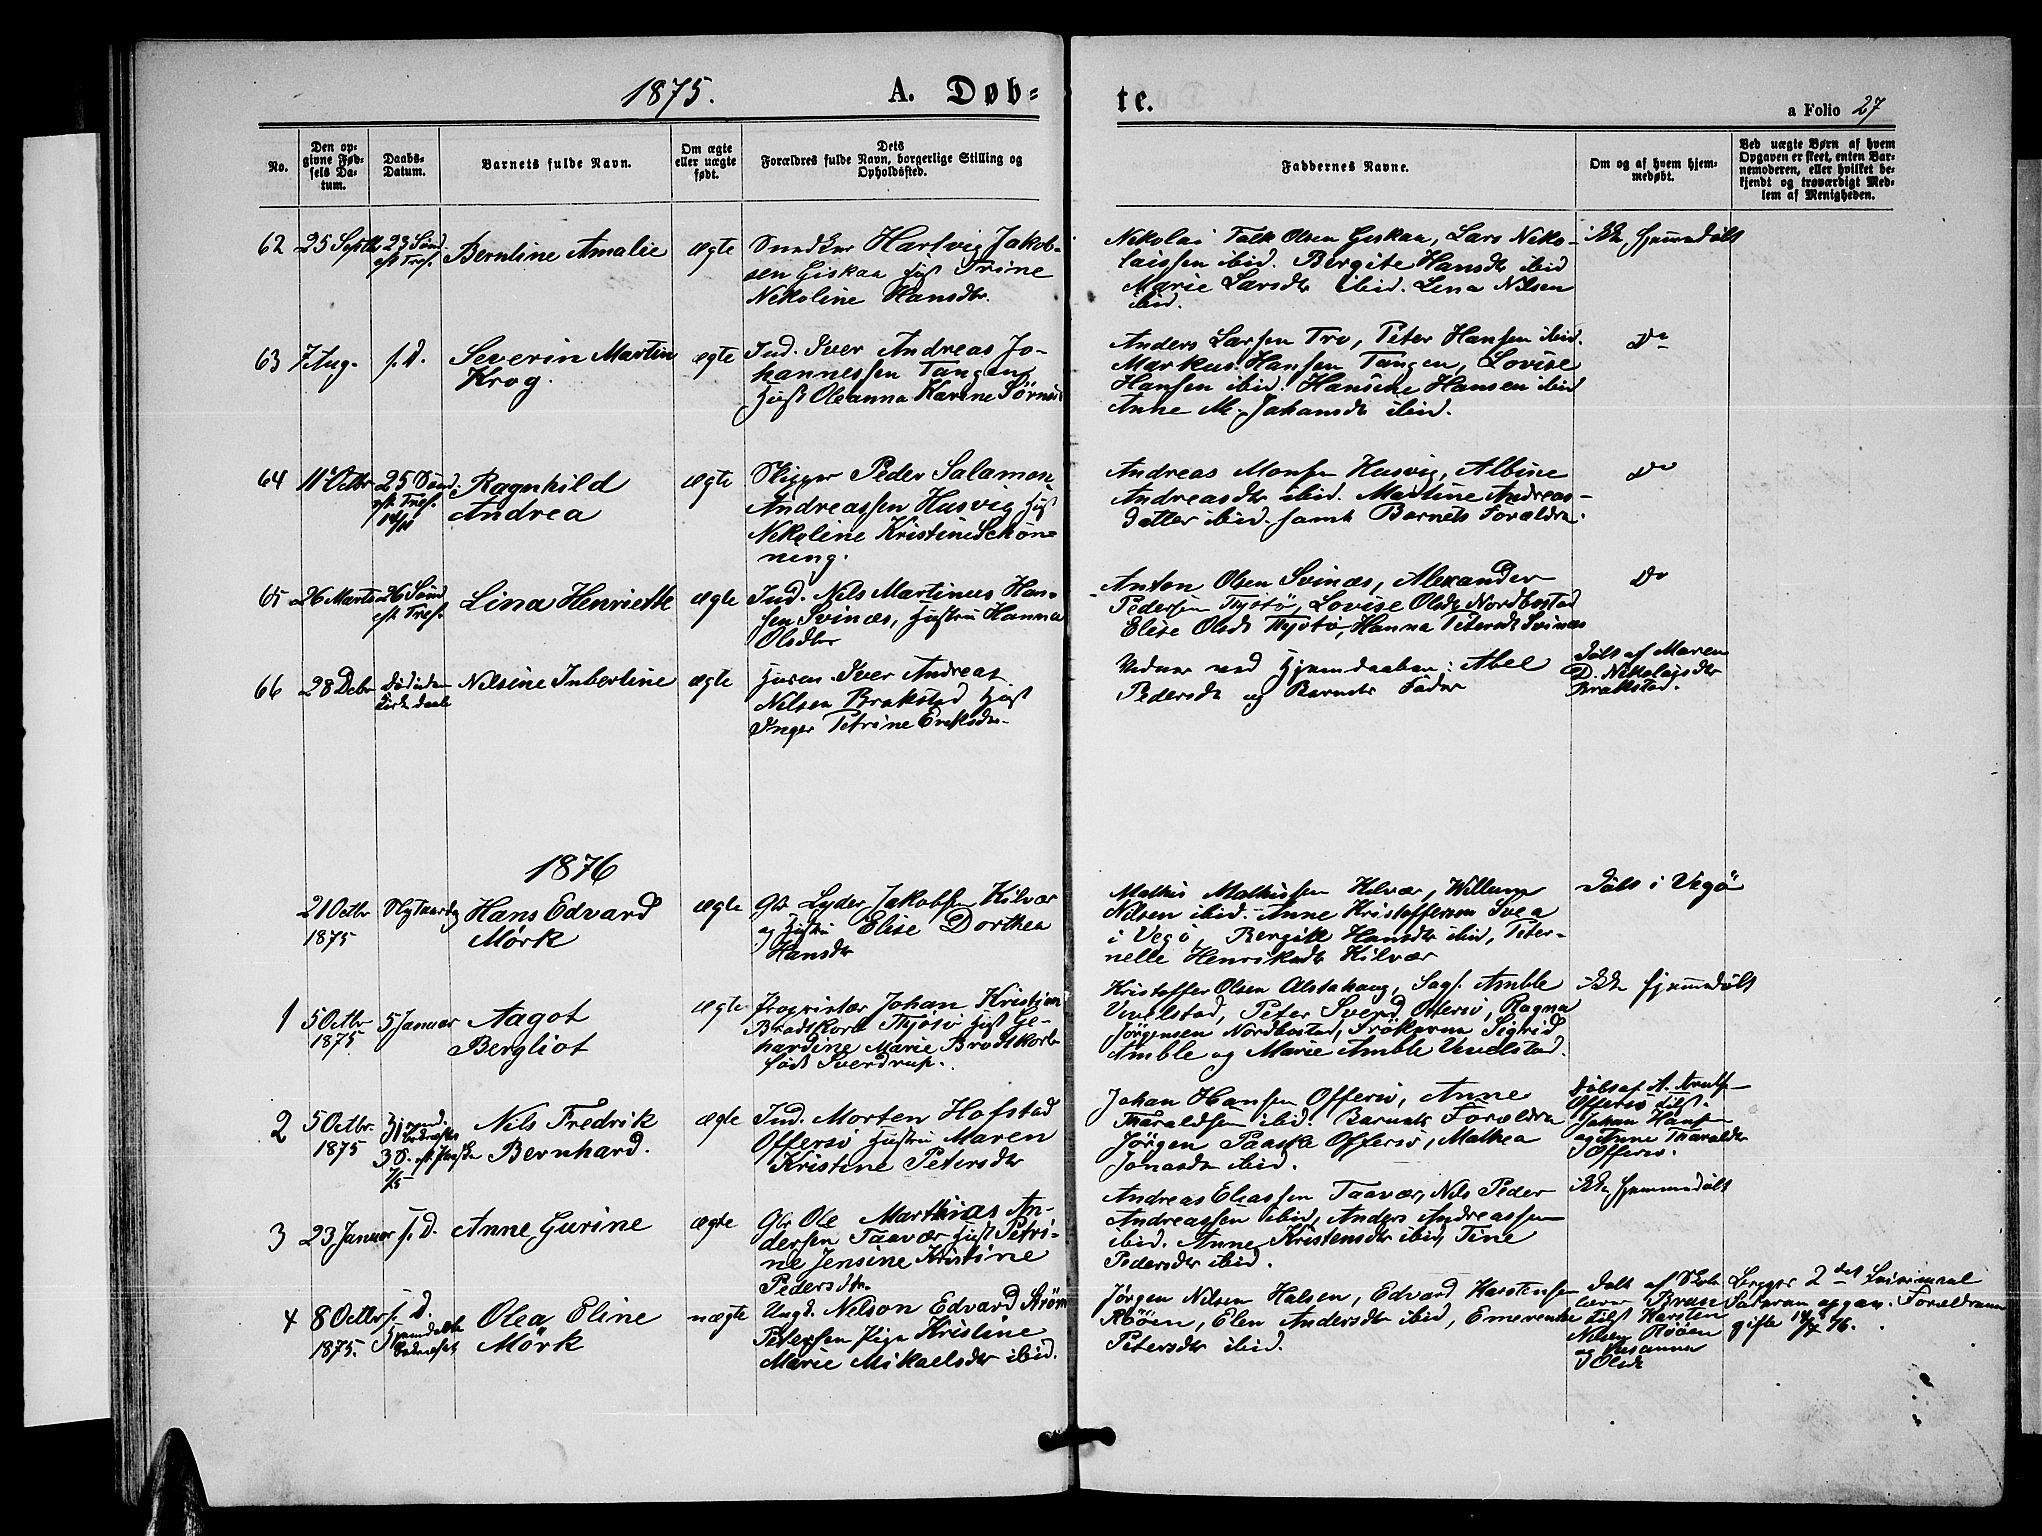 1875. A. Døb=
te.
a Folio 27
No.
Den op=
givne Fød=
sels Da=
tum.
Daabs=
Datum.
Barnets fulde Navn.
Om ægte
eller uægte
født.
Dets
Forældres fulde Navn, borgerlige Stilling og
Opholdssted.
Faddernes Navne.
Om og af hvem hjem=
medøbt.
Ved uægte Børn af hvem
Opgaven er skeet, enten Bar=
nemoderen, eller hvilket be=
kjendt og troværdigt Med=
lem af Menigheden.
62 25 Septb 23 Sønd
eft Tref.
Berntine Amalie
ægte
Hartvig Jakob-
sen Giskaa Hust Trine
Nikoline Hansdtr.
Nikolai Falk Olsen Giskaa, Lars Niko-
laissen ibid. Bergite Hansdtr ibid
Marie Larsdtr ibid. Lina Nilsen
ibid.
Ikke hjemmedøbt
63 7 Aug. s. D.
Severin Martin
Krog.
ægte
Ind. Iver Andreas Jo-
hannessen Tangen
Hust Oleanna Karine
Anders Larsen Tro, Peter Hansen ibid.
Markus Hansen Tangen, Lovise
Hansen ibid. Hansine Hansen ibid
Anne M. Johansdtr ibid.
Do
64 11 Octbr 25 Sønd.
eft Tref.
14/11
Ragnhild
Andrea
ægte
Skipper Peder Salamon
Andreassen Husvig Hust
Nikoline Kristine Schøn-
ning.
Andreas Monsen Husvig, Albine
Andreasdtr ibid. Martine Andreas-
datter ibid. samt Barnets Forældre.
Do
65 26 Marts 26 Sønd
eft Tref
Lina Henriette
ægte
Ind. Nils Martinus Han-
sen Svinæs, Hustru Hanna
Olsdtr
Anton Olsen Svinæs, Alexander
Pedersen Thjøtø, Lovise Olsdtr Nordbostad
Elise Olsdtr Thjøtø, Hanna Petersdtr Svinæs
Do
66 28 Debr Død uden
Kirkedaab
Nilsine Inbertine
ægte
Iver Andreas
Nilsen Brakstad Hust
Inger Petrine Eriksdtr
Vidner ved Hjemdaaben: Abel
Pedersdtr og Barnets Fader
Døbt af Maren
D. Nikolaisdtr
Brakstad.
1876
21 Octbr
1875
Nytaarsdag
Hans Edvard
Mørk
ægte
Gbr Lyder Jakobsen Kilvær
og Hustru Elise Dorthea
Hansdtr
Mathis Mathissen Kilvær, Willum
Nilsen ibid. Anne Kristoffersen
i Vegø, Bergitte Hansdtr ibid, Peter-
nelle Henriksdtr Kilvær
Døbt i Vegø
1 5 Octbr
1875
5 Januar
Aagot
Bergliot
ægte
Proprietær Johan Kristian
Brodtkorb Thjøtø Hust Ge-
hardine Marie Brodtkorb
født Sverdrup.
Kristoffer Olsen Alstahaug, Sagf. Amble
Vevelstad, Peter Offersø, Ragna
Jørgensen Nordbostad, Frøknerne Sigrid
Amble og Marie Amble Vevelstad.
Ikke hjemmedøbt
2 5 Octbr.
1875
Hjemd.
bekræftes
3 S. eft Paaske
7/5
Nils Fredrik
Bernhard.
ægte
Ind. Morten Hofstad
Offersø Hustru Maren
Kristine Petersdtr
Johan Hansen Offersø, Anne
Tharaldsen ibid. Barnets Forældre
Jørgen Paaske Offersø, Mathea
Jonasdtr ibid.
Døbt af A.
Offersø Tilst.
Johan Hansen
og Anne Tharaldsdtr
Offersø.
3 23 Januar s. D.
Anne Gurine
ægte
Gbr Ole Marthias An-
dersen Taavær Hust Petri-
ne Jensine Kristine
Pedersdtr.
Andreas Eliassen Taavær, Nils Peder
Andreassen ibid, Anders Andreassen
ibid. Anne Kristensdtr ibid, Tine
Pedersdtr ibid.
Ikke hjemmedøbt
4 8 Octbr
1875.
s. D.
Hjemdaaben
bekræftet
Olea Eline
Mörk
uægte
Ungk. Nelson Edvard Strøm
Petersen Pige Kristine
Marie Mikaelsdtr ibid.
Jørgen Nilsen Halsen, Edvard Karstensen
Røøen, Elen Andersdtr ibid, Emerentse
Petersdtr ibid.
Døbt af Skole
lærer
Tilst Karsten
Nilsen Røøen
og Susanna
Olsdtr
Begges 2det Leiermaal
opgav. Forældrene
gifte 76.